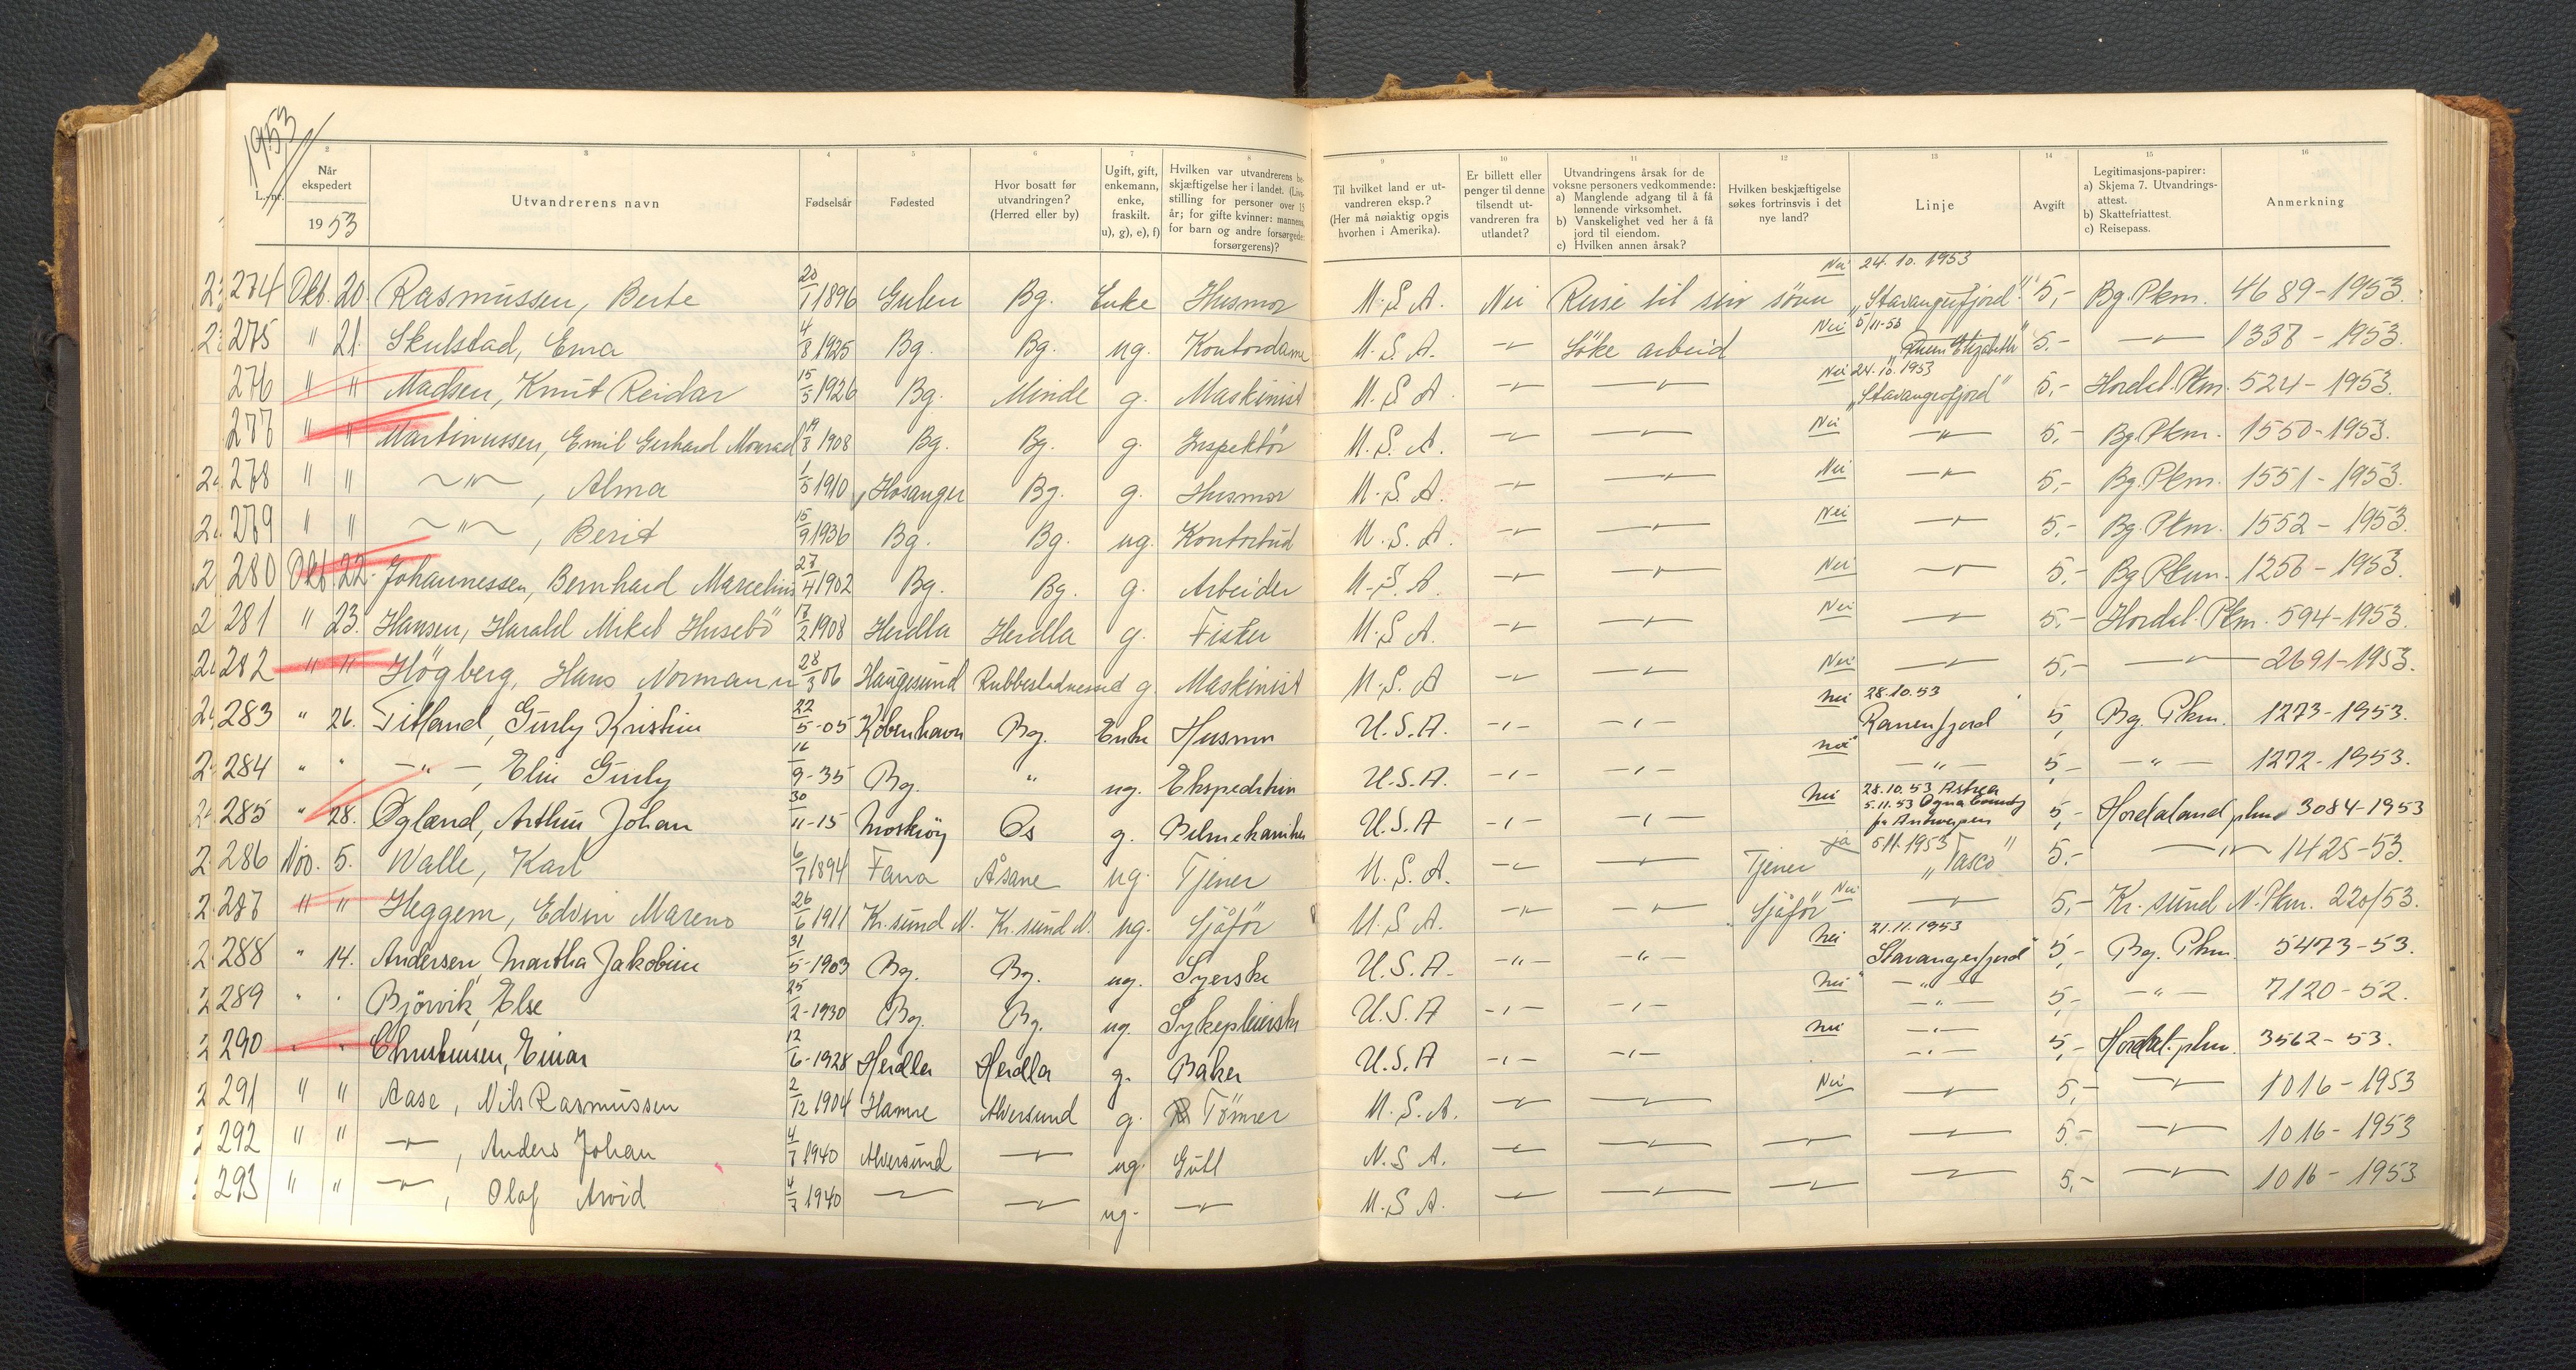 1953
L.nr.
2
Når ekspedert
1953
3
Utvandrerens navn
4
Fødselsår
5
Fødested
6
Hvor bosatt før utvandringen? (Herred eller by)
7
Ugift, gift, enkemann, enke, fraskilt. u), g), e), f)
8
Hvilken var utvandrerens be- skjæftigelse her i landet. (Livs- stilling for personer over 15 år; for gifte kvinner: mannens, for barn og andre forsørgede: forsørgerens)?
9
Til hvilket land er ut- vandreren eksp.? (Her må nøiaktig opgis hvorhen i Amerika).
10
Er billett eller penger til denne tilsendt ut- vandreren fra utlandet?
11
Utvandringens årsak for de voksne personers vedkommende:
a) Manglende adgang til å få lønnende virksomhet.
b) Vanskelighet ved her å få jord til eiendom.
c) Hvilken annen årsak?
12
Hvilken beskjæftigelse søkes fortrinsvis i det nye land?
13
Linje
14
Avgift
15
Legitimasjons-papirer:
a) Skjema 7. Utvandrings- attest.
b) Skattefriattest.
c) Reisepass.
16
Anmerkning
274 Okt. 20. Rasmussen, Berte 20/1 1896 Gulen Bg. Enke Husmor U.S.A. Nei Reise til sin sönn Nei 24.10.1953 „Stavangerfjord" 5,- Bg. Pkm. 4689-1953.
275 " 21. Skulstad, Erna 4/8 1925 Bg. Bg. ug. Kontordame U.S.A. -"- Söke arbeid Nei 5/11-53 „Queen Elizabeth" 5.- -"- 1338-1953.
276 " " Madsen, Knut Reidar 15/5 1926 Bg. Minde g. Maskinist U.S.A. -"- -"- Nei 24.10.1953 „Stavangerfjord" 5,- Hordal. Pkm. 524-1953.
277 " " Martinussen, Emil Gerhard Monrad 19/8 1908 Bg. Bg. g. Inspektör U.S.A. -"- -"- Nei -"- 5,- Bg. Pkm. 1550-1953.
278 " " -"-, Alma 1/5 1910 Hosanger Bg. g. Husmor U.S.A. -"- -"- Nei -"- 5,- Bg. Pkm. 1551-1953.
279 " " -"-, Berit 15/9 1936 Bg. Bg. ug. Kontorbud U.S.A. -"- -"- Nei -"- 5.- Bg. Pkm. 1552-1953.
280 Okt. 22. Johannessen, Bernhard Marcelius 27/4 1902 Bg. Bg. g. Arbeider U.S.A. -"- -"- Nei -"- 5,- Bg Pkm. 1256-1953.
281 " 23. Hansen, Harald Mikal Husebö 17/2 1908 Herdla Herdla g. Fisker U.S.A. -"- -"- Nei -"- 5.- Hordal. Pkm. 594-1953.
282 " " Högberg, Hans Normann 28/3 06 Haugesund Rubbestadnesset g Maskinist U.S.A -"- -"- Nei -"- 5,- -"- 2691-1953.
283 " 26. Titland, Gurly Kristine 22/5-05 Köbenhavn Bg. Enke Husmor U.S.A. -"- -"- nei 28.10.53 Ranenfjord 5, Bg. Pkm. 1273-1953.
284 " " -"-, Elin Gurly 16/9-35 Bg. " ug. Ekspeditrise U.S.A. -"- -"- nei -"- 5,- -"- 1272-1953.
285 " 28. Øgland, Arthur Johan 30/11-15 Mosteröy Os g. Bilmekaniker U.S.A -"- -"- nei 28.10.53 Astrea 5.11.53 fr Antwerpen 5,- Hordaland pkm 3084-1953
286 Nov. 5. Walle, Karl 6/7 1894 Fana Åsane ug. Tjener U.S.A. -"- -"- Tjener ja 5.11.1953 „Tasco" 5.- -"- 1425-53.
287 " " Heggem, Edvin Mareno 26/6 1911 Kr. sund N. Kr. sund N. ug. Sjåför U.S.A. -"- -"- Sjåför Nei -"- 5,- Kr. sund N. Pkm. 220/53.
288 " 14. Andersen, Martha Jakobine 31/5-1903 Bg. Bg. ug. Syerske U.S.A. -"- -"- nei 21.11.1953 Stavangerfjord 5,- Bg. Pkm. 5473-53.
289 " " Björvik, Else 25/2-1930 Bg. Bg. ug. Sykepleierske U.S.A -"- -"- nei -"- 5,- -"- 7120-52.
290 " " Christensen, Einar 12/6-1928 Herdla Herdla g. Baker U.S.A -"- -"- nei -"- 5,- Hordal. pkm. 3562-53.
291 " " Aase, Nils Rasmussen 2/12 1904 Hamre Alversund g. Tömrer U.S.A. -"- -"- Nei -"- 5,- -"- 1016-1953
292 " " -"-, Anders Johan 4/7 1940 Alversund -"- ug. Gutt U.S.A. -"- -"- -"- -"- 5.- -"- 1016-1953
293 " " -"-, Olaf Arvid 4/7 1940 -"- -"- ug. -"- U.S.A. -"- -"- -"- -"- 5,- -"- 1016-1953